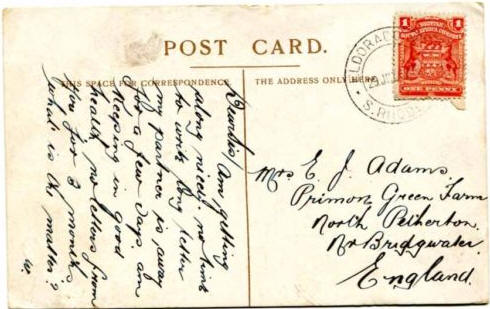 POST CARD.
THIS SPACE FOR CORRESPONDENCE
THE ADDRESS ONLY HERE
1
1
BRITISH
SOUTH AFRICA COMPANY
ONE PENNY
ELDORADO
S. RHOD
am getting
along nicely. no time
to write long letter
my partner is away
for a few days am
keeping in good
health, no letters from
you for 3 months
what is the matter?
Mrs E. J. Adams.
Primon Green Farm
North Petherton.
Nr Bridgwater.
England.